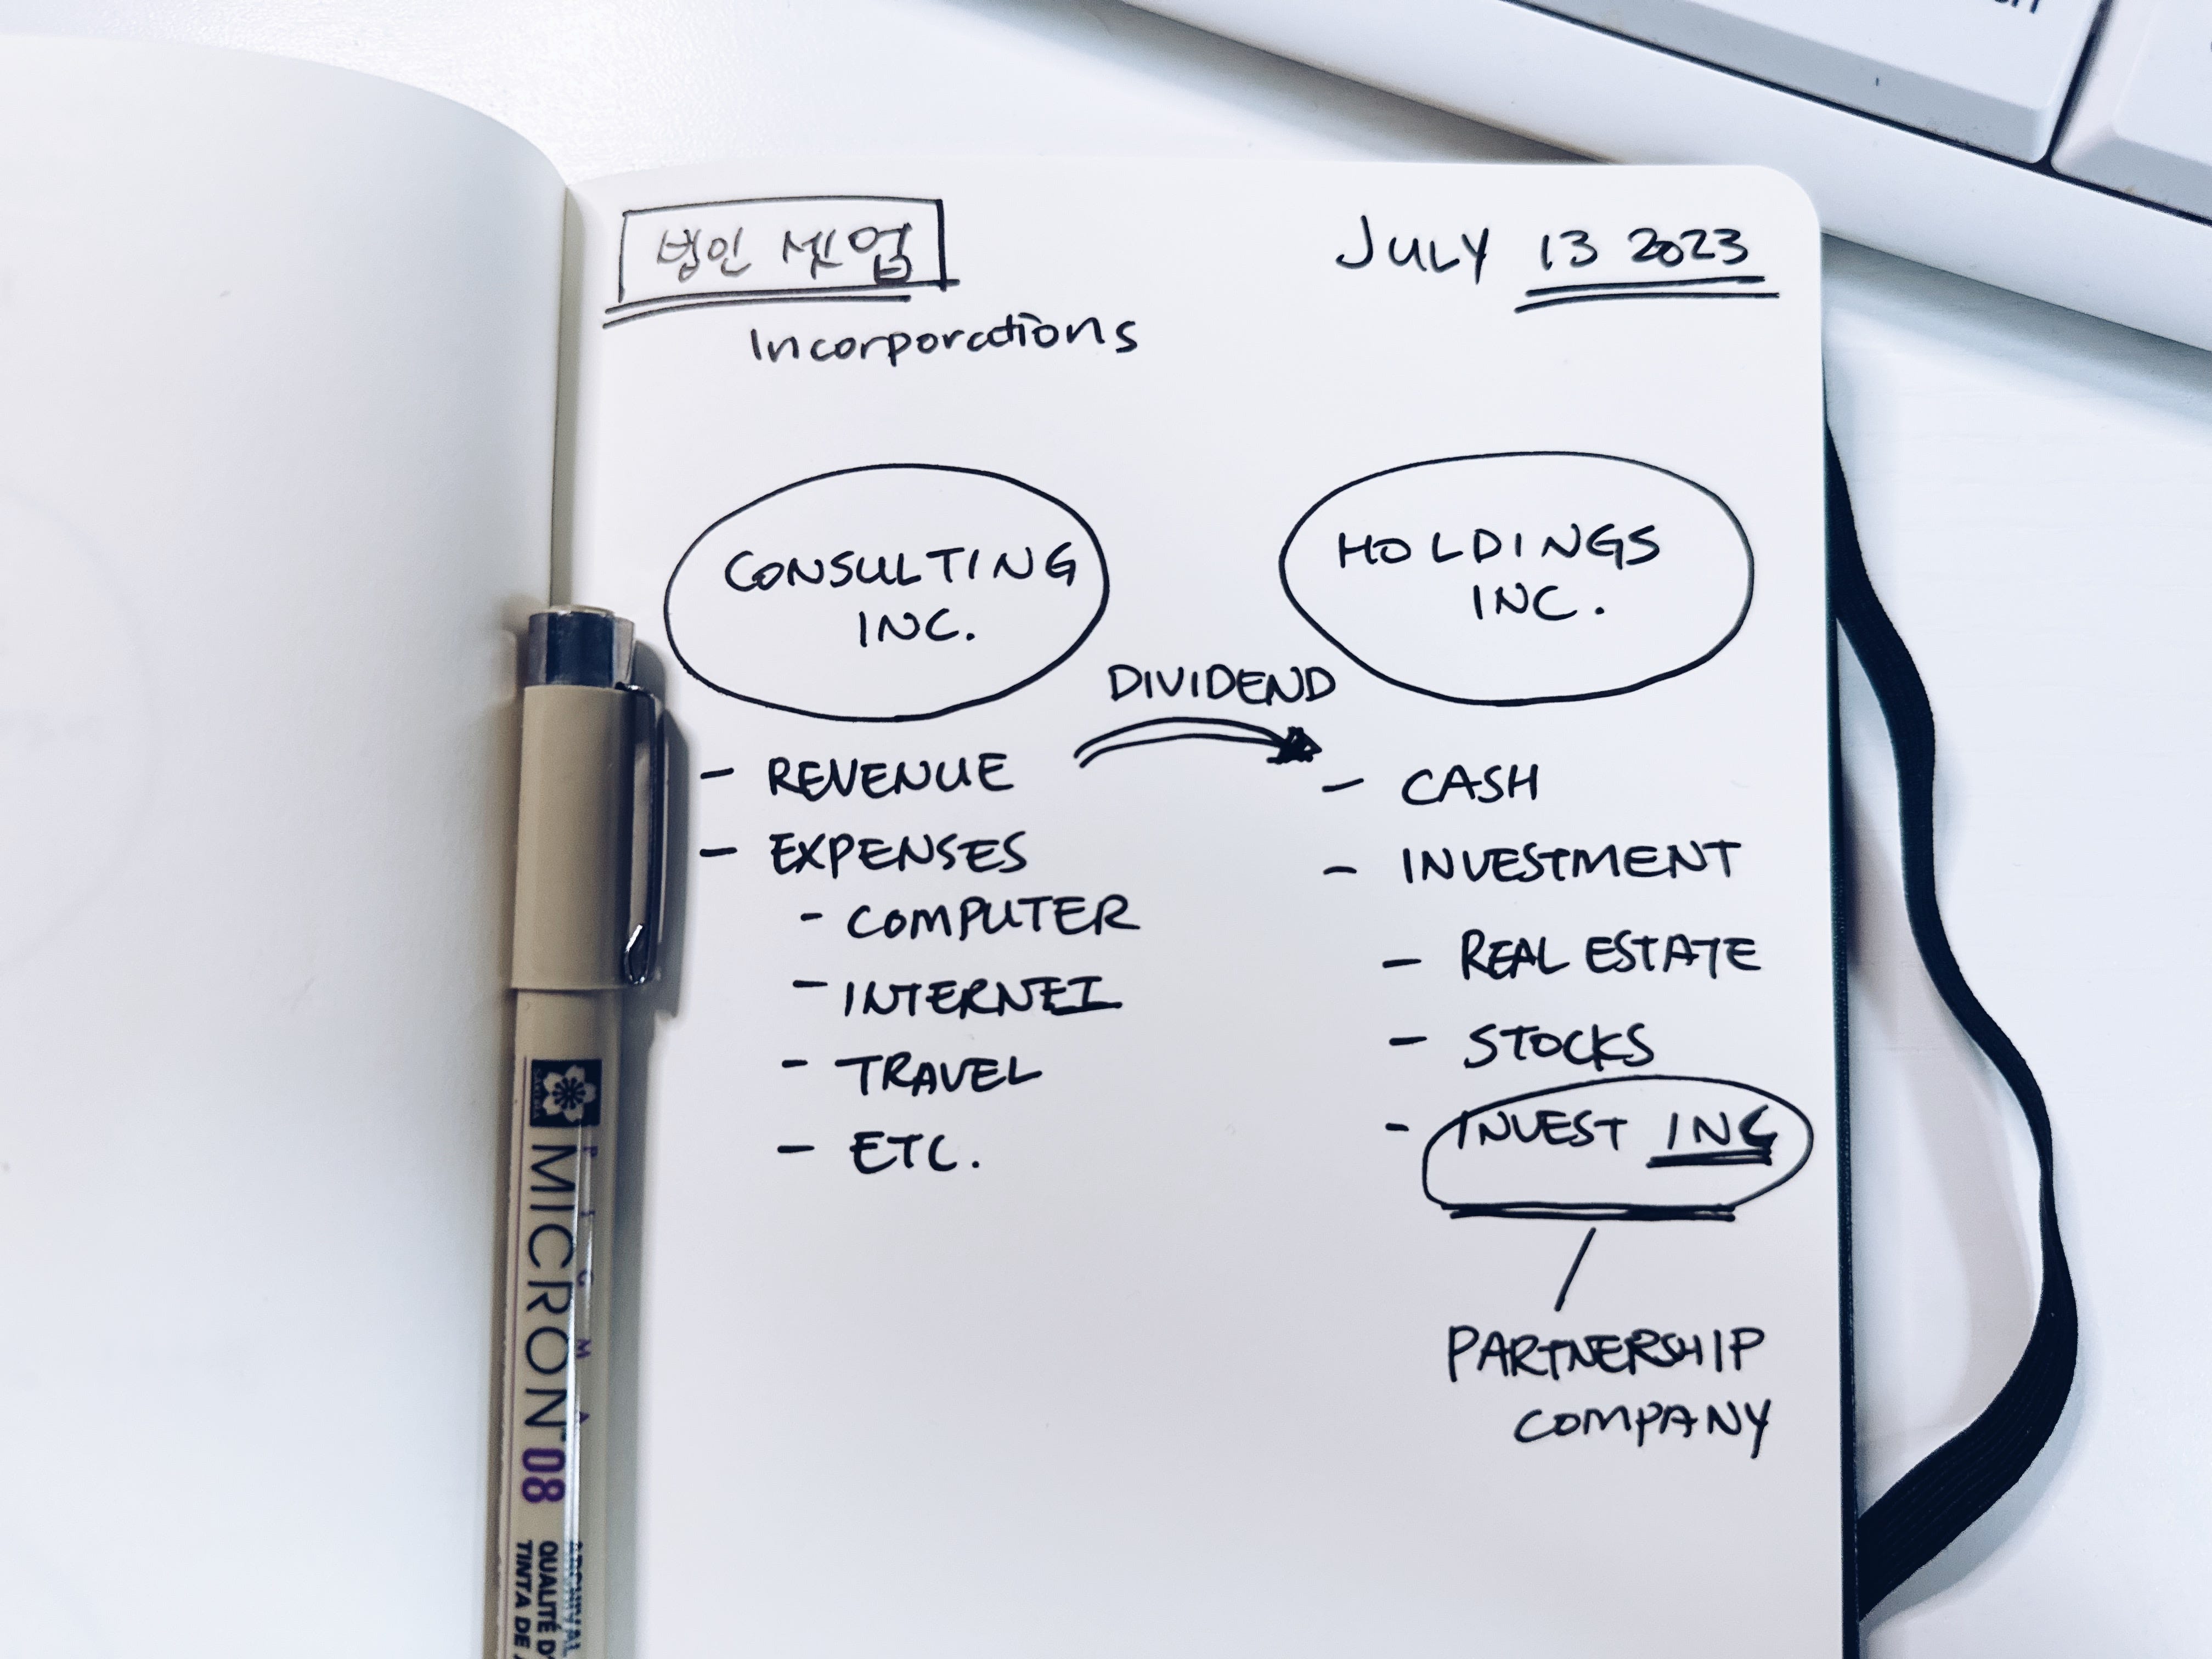 법인 셋업
JULY 13 2023
Incorporations
CONSULTING
INC.
HOLDINGS
INC.
DIVIDEND
- REVENUE
- EXPENSES
- COMPUTER
- INTERNET
- TRAVEL
- ETC.
- CASH
- INVESTMENT
- REAL ESTATE
- STOCKS
- INVEST INC
PARTNERSHIP
COMPANY
SAKURA
PIGMA
MICRON™ 08
ARCHIVAL
QUALITÉ D'
TINTA DE